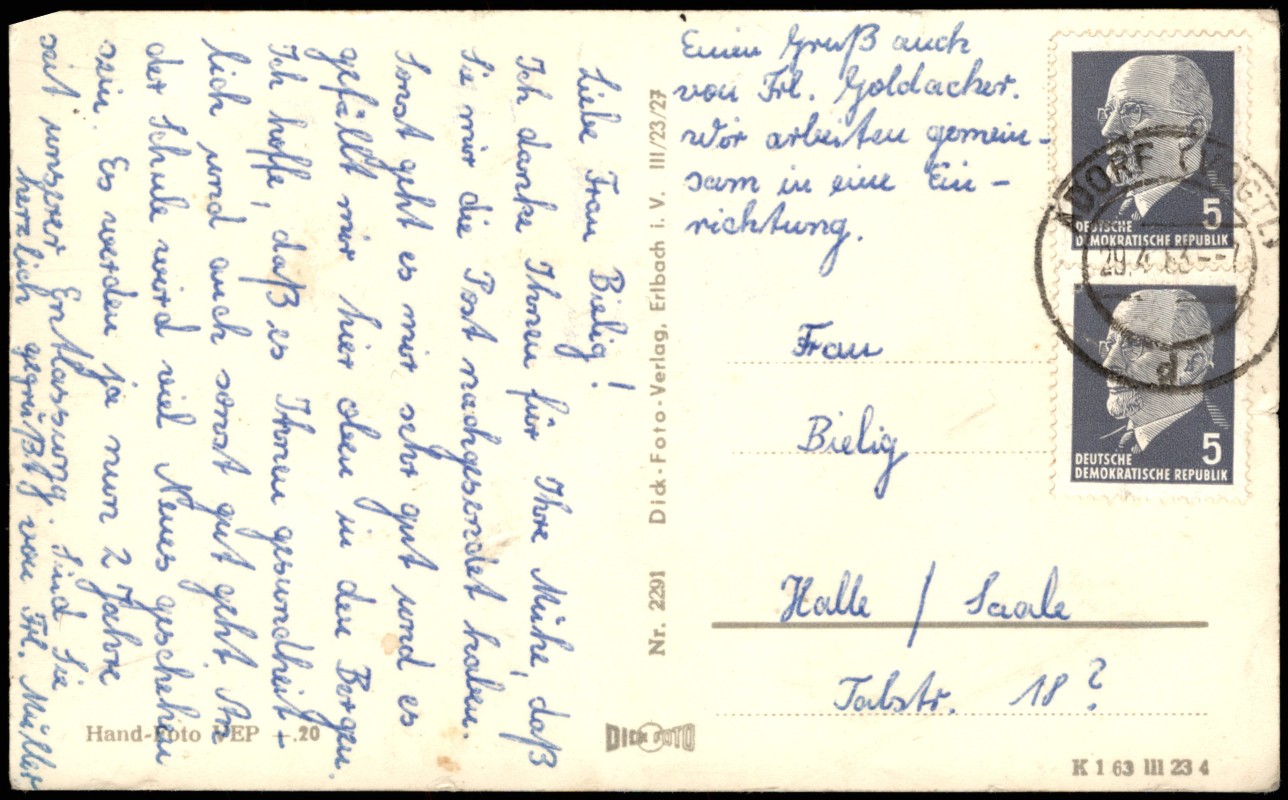 Liebe Frau Bielig!
Ich danke Ihnen für Ihre Mühe, daß
Sie mir die Post nachgesendet haben.
Sonst geht es mir sehr gut und es
gefällt mir hier oben in den Bergen.
Ich hoffe, daß es Ihnen gesundheit-
lich und auch sonst gut geht. An
der Schule wird viel Neues geschehen
sein. Es werden ja nun 2 Jahre
seit unserer Entlassung. Sind Sie
herzlich gegrüßt von Frl. Müller
Einen Gruß auch
von Frl. Goldacker.
Wir arbeiten gemein-
sam in eine Ein-
richtung.
Frau
Bielig
Halle / Saale
Talstr. 18?
Nr. 2291 Dick-Foto-Verlag, Erlbach i. V. III/23/27
Hand-Foto VEP -.20
DICK FOTO
K 1 63 III 23 4
5
DEUTSCHE
DEMOKRATISCHE REPUBLIK
5
DEUTSCHE
DEMOKRATISCHE REPUBLIK
ADORF (VOGTL)
29.4.63--7
d